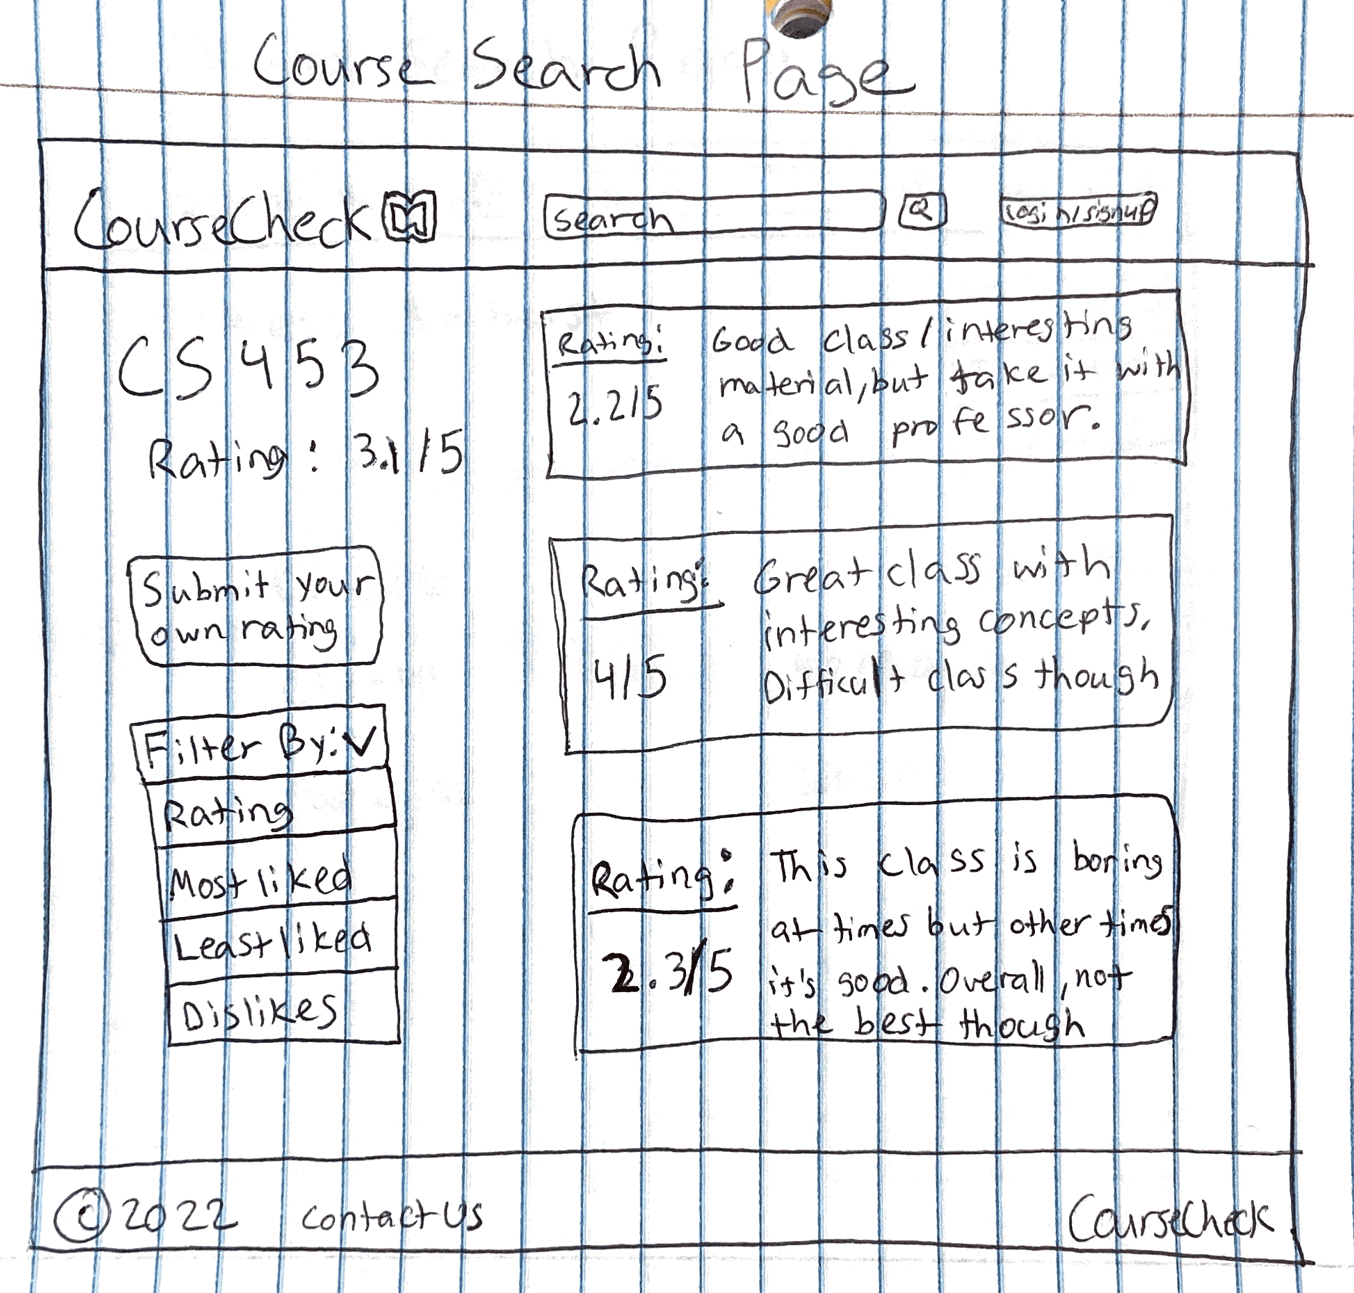 Course Search Page
CourseCheck
search
Login/signup
CS 453
Rating: 3.1/5
Submit your
own rating
Filter By:
Rating
Most liked
Least liked
Dislikes
Rating:
2.2/5
Good class/interesting
material, but take it with
a good professor.
Rating:
4/5
Great class with
interesting concepts,
Difficult class though
Rating:
2.3/5
This class is boring
at times but other times
it's good. Overall, not
the best though
© 2022
Contact Us
CourseCheck